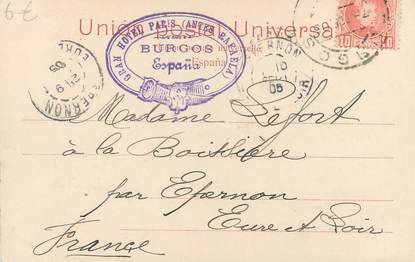 6€
Unión postal Universal
GRAN HOTEL PARIS (ANTES RAFAELA)
BURGOS
España
España
10
EPERNON
EURE
Madame Lefort
à la Boissière
par Epernon
Eure et Loir
France